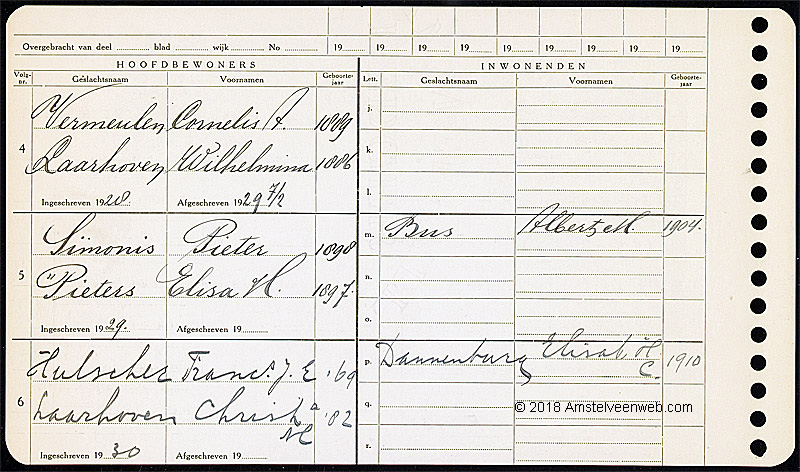 Overgebracht van deel ............ blad ............ wijk ............ No ............ 19...... 19...... 19...... 19...... 19...... 19...... 19...... 19......
HOOFDBEWONERS INWONENDEN
Volg-nr. Geslachtsnaam Voornamen Geboorte-jaar Lett. Geslachtsnaam Voornamen Geboorte-jaar
j.
Vermeulen Cornelis A. 1889
4 k.
Laarhoven Wilhelmina 1886
l.
Ingeschreven 1928 Afgeschreven 1929 7/2
Simonis Pieter 1898 m. Bus Albert M. 1904.
5 n.
"Pieters Elisa H. 1897.
o.
Ingeschreven 1929. Afgeschreven 19......
Hulscher Franc. J. E '69 p. Dannenburg Elisab H. C. 1910
6 q.
Laarhoven Christa M '82
© 2018 Amstelveenweb.com
r.
Ingeschreven 1930 Afgeschreven 19......